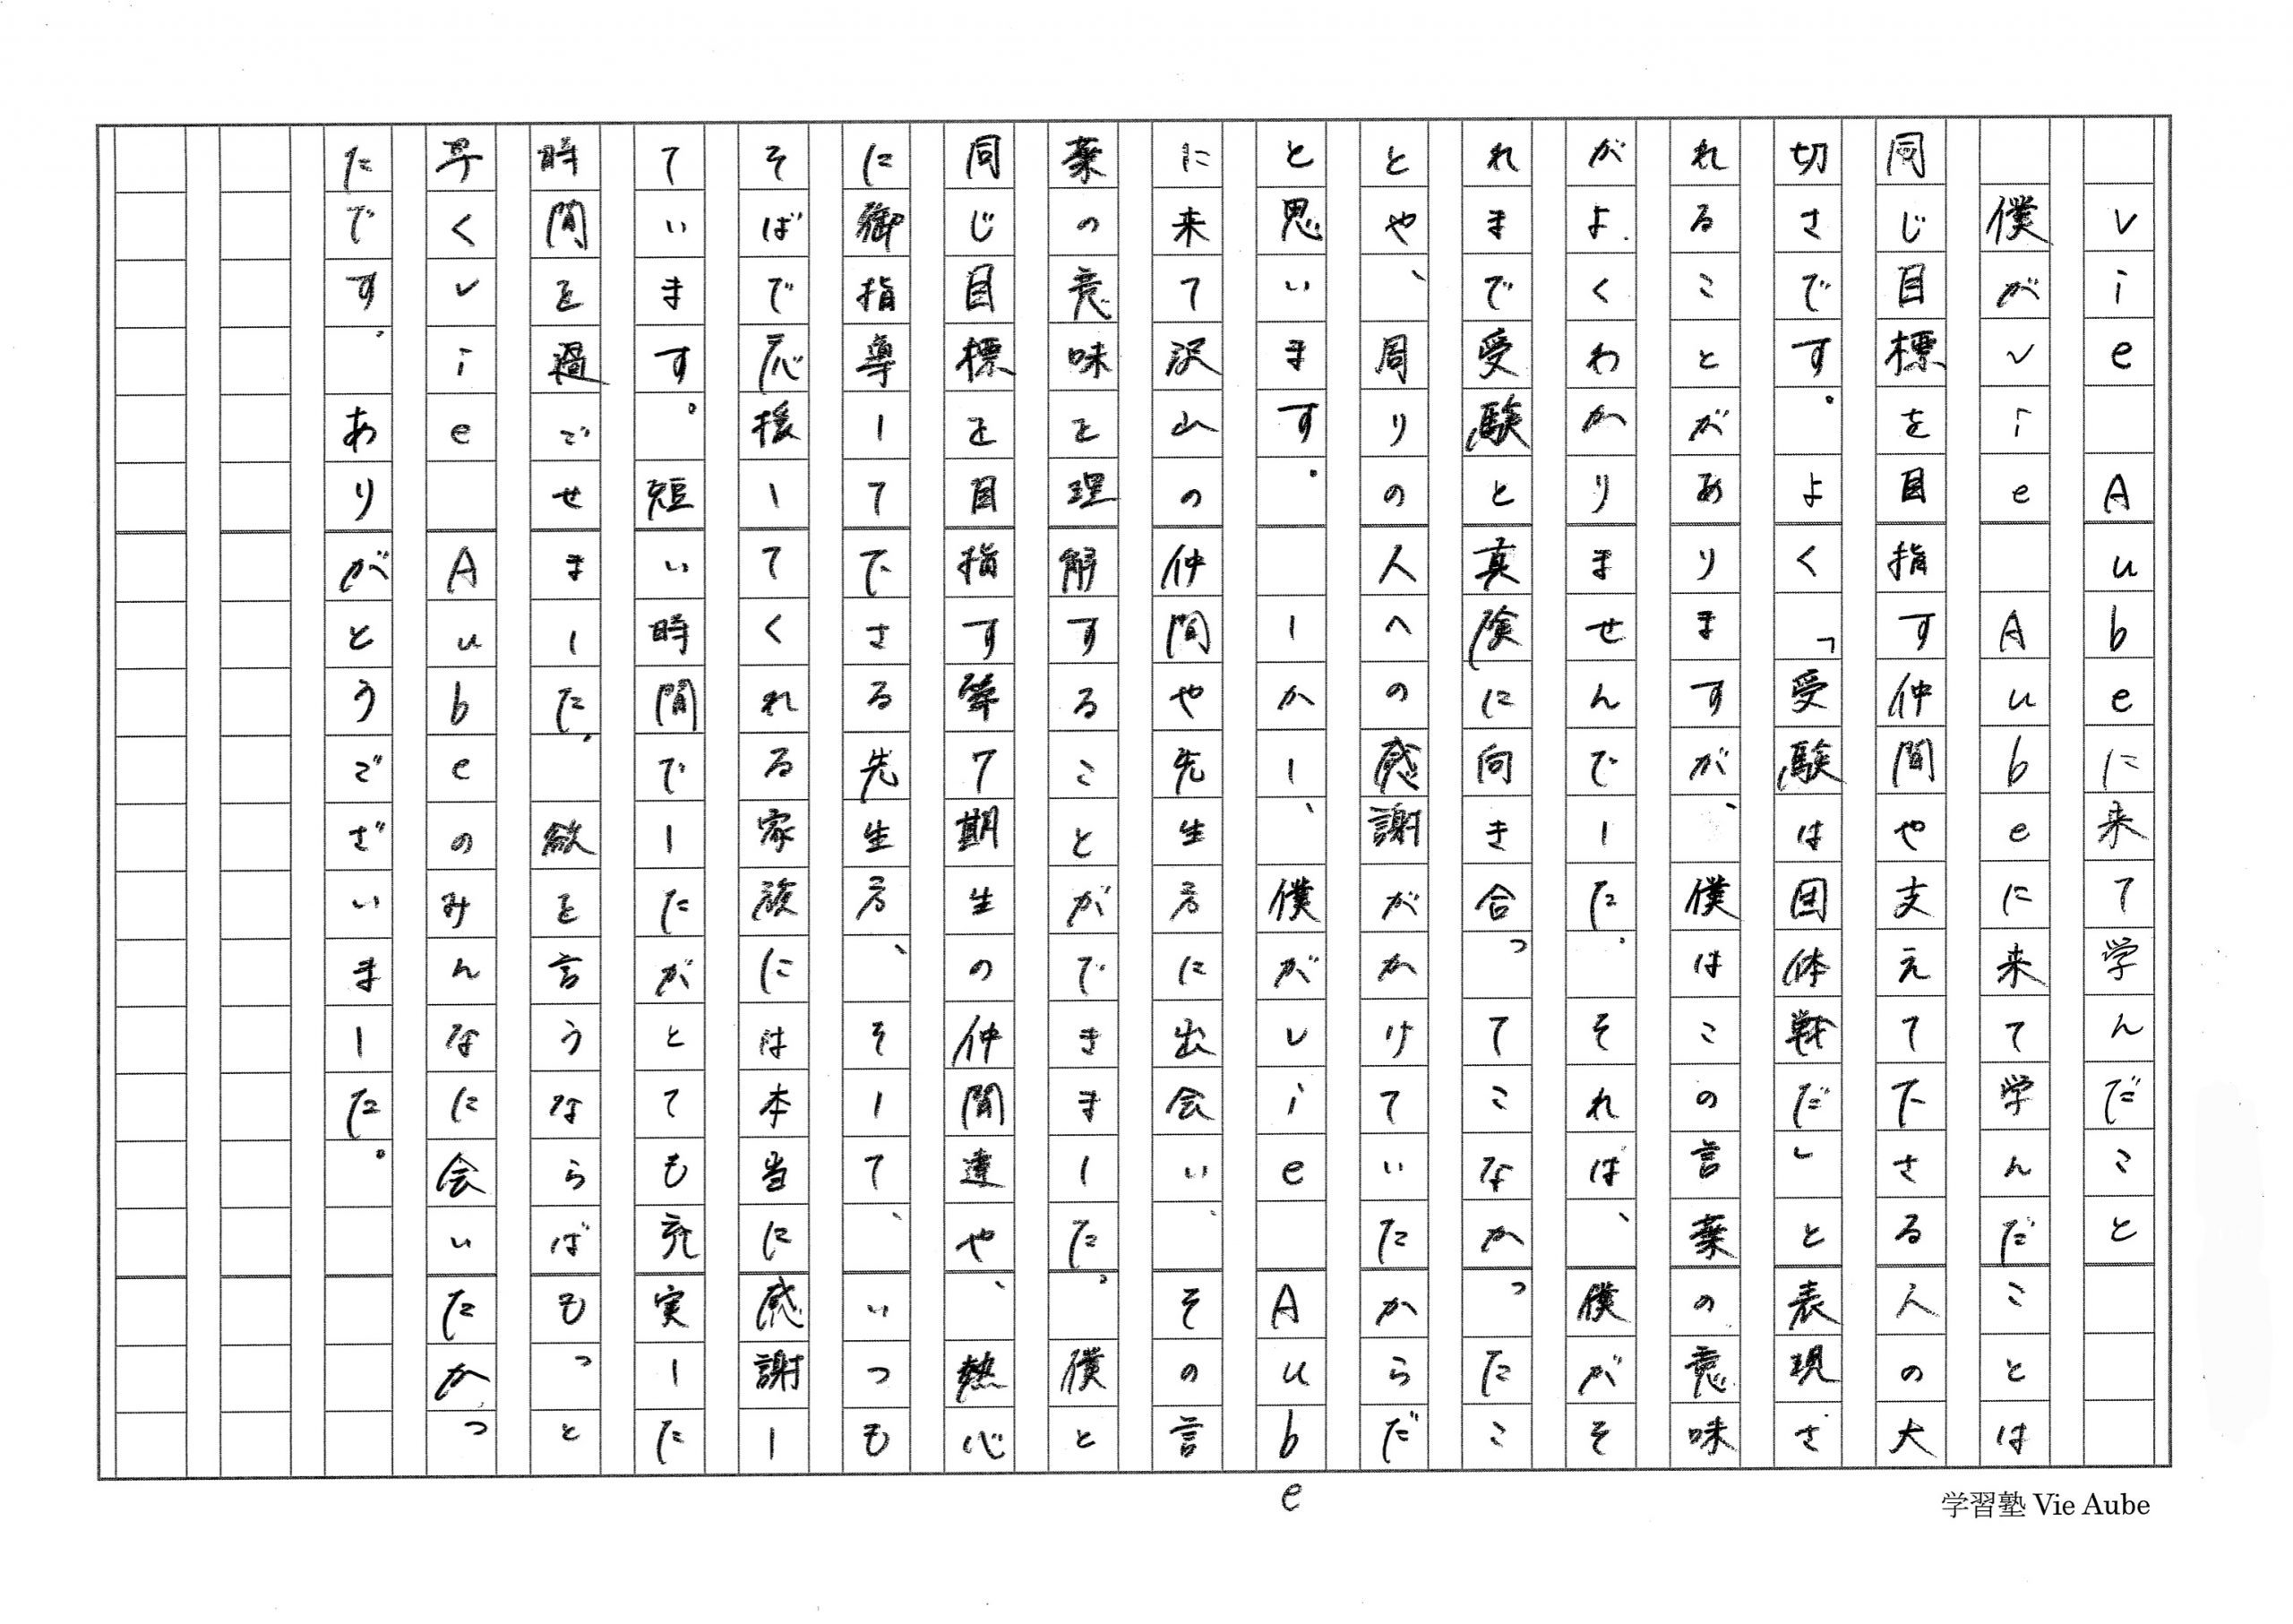 Vie Aubeに来て学んだこと
僕がVie Aubeに来て学んだことは
同じ目標を目指す仲間や支えて下さる人の大
切さです。よく「受験は団体戦だ」と表現さ
れることがありますが、僕はこの言葉の意味
がよくわかりませんでした。それは、僕がそ
れまで受験と真険に向き合ってこなかったこ
とや、周りの人への感謝がかけていたからだ
と思います。しかし、僕がVie Aube
に来て沢山の仲間や先生方に出会い、その言
葉の意味を理解することができました。僕と
同じ目標を目指す第7期生の仲間達や、熱心
に御指導して下さる先生方、そして、いつも
そばで応援してくれる家族には本当に感謝し
ています。短い時間でしたがとても充実した
時間を過ごせました。欲を言うならばもっと
早くVie Aubeのみんなに会いたかっ
たです。ありがとうございました。
学習塾 Vie Aube